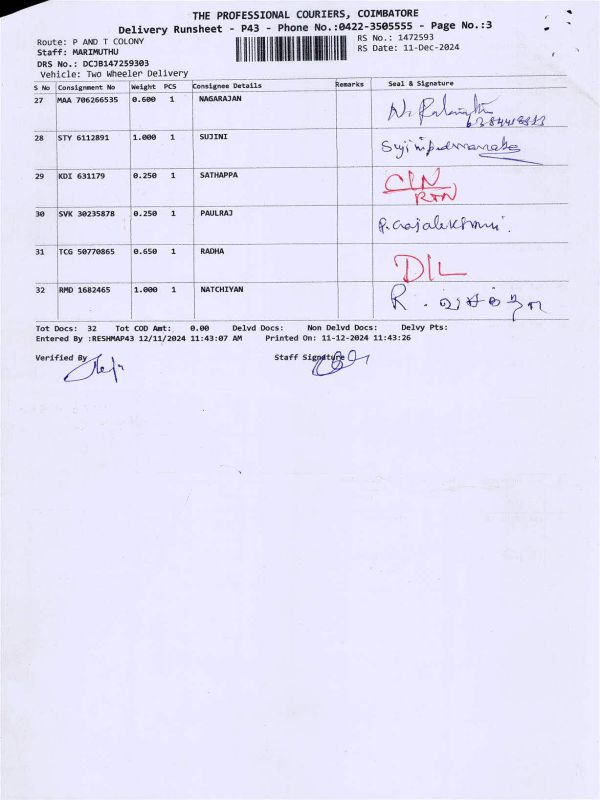 THE PROFESSIONAL COURIERS, COIMBATORE
Delivery Runsheet - P43 - Phone No.:0422-3505555 - Page No.:3
Route: P AND T COLONY
RS No.: 1472593
Staff: MARIMUTHU
RS Date: 11-Dec-2024
DRS No.: DCJB147259303
Vehicle: Two Wheeler Delivery
S No Consignment No Weight PCS Consignee Details Remarks Seal & Signature
27 MAA 706266535 0.600 1 NAGARAJAN
28 STY 6112891 1.000 1 SUJINI
29 KDI 631179 0.250 1 SATHAPPA C/N
RTN
30 SVK 30235878 0.250 1 PAULRAJ P. Rajalekshmi.
31 TCG 50770865 0.650 1 RADHA D/L
32 RMD 1682465 1.000 1 NATCHIYAN R.
Tot Docs: 32 Tot COD Amt: 0.00 Delvd Docs: Non Delvd Docs: Delvy Pts:
Entered By :RESHMAP43 12/11/2024 11:43:07 AM Printed On: 11-12-2024 11:43:26
Verified By Staff Signature